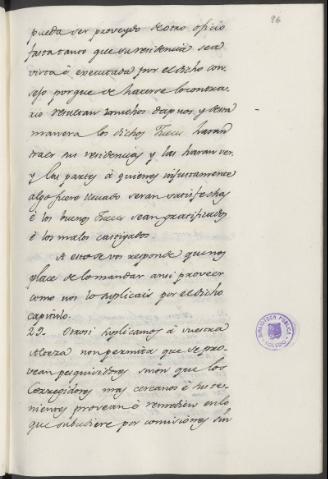 96
pueda ser proveydo de otro oficio
fasta tanto que su residencia sea
vista é executada por el dicho con-
sejo porque de hacerse lo contra-
rio venceran muchos daños y desta
manera los dichos Jueces haran
traer sus residencias y las haran ver
y las partes á quienes injustamente
algo fuere llevado seran satisfechas
é los buenos Jueces sean gratificados
é los malos castigados.
A esto os vos responde que nos
place de lo mandar ansi proveer
como nos lo suplicais por el dicho
capitulo.
29. Otrosi suplicamos á vuestra
Alteza non permita que se pro-
vean pesquisidores sinon que los
Corregidores mas cercanos é su te-
nientes provean é remedien en lo
que subcediere por comisiones sin
BIBLIOTECA PUBLICA
TOLEDO